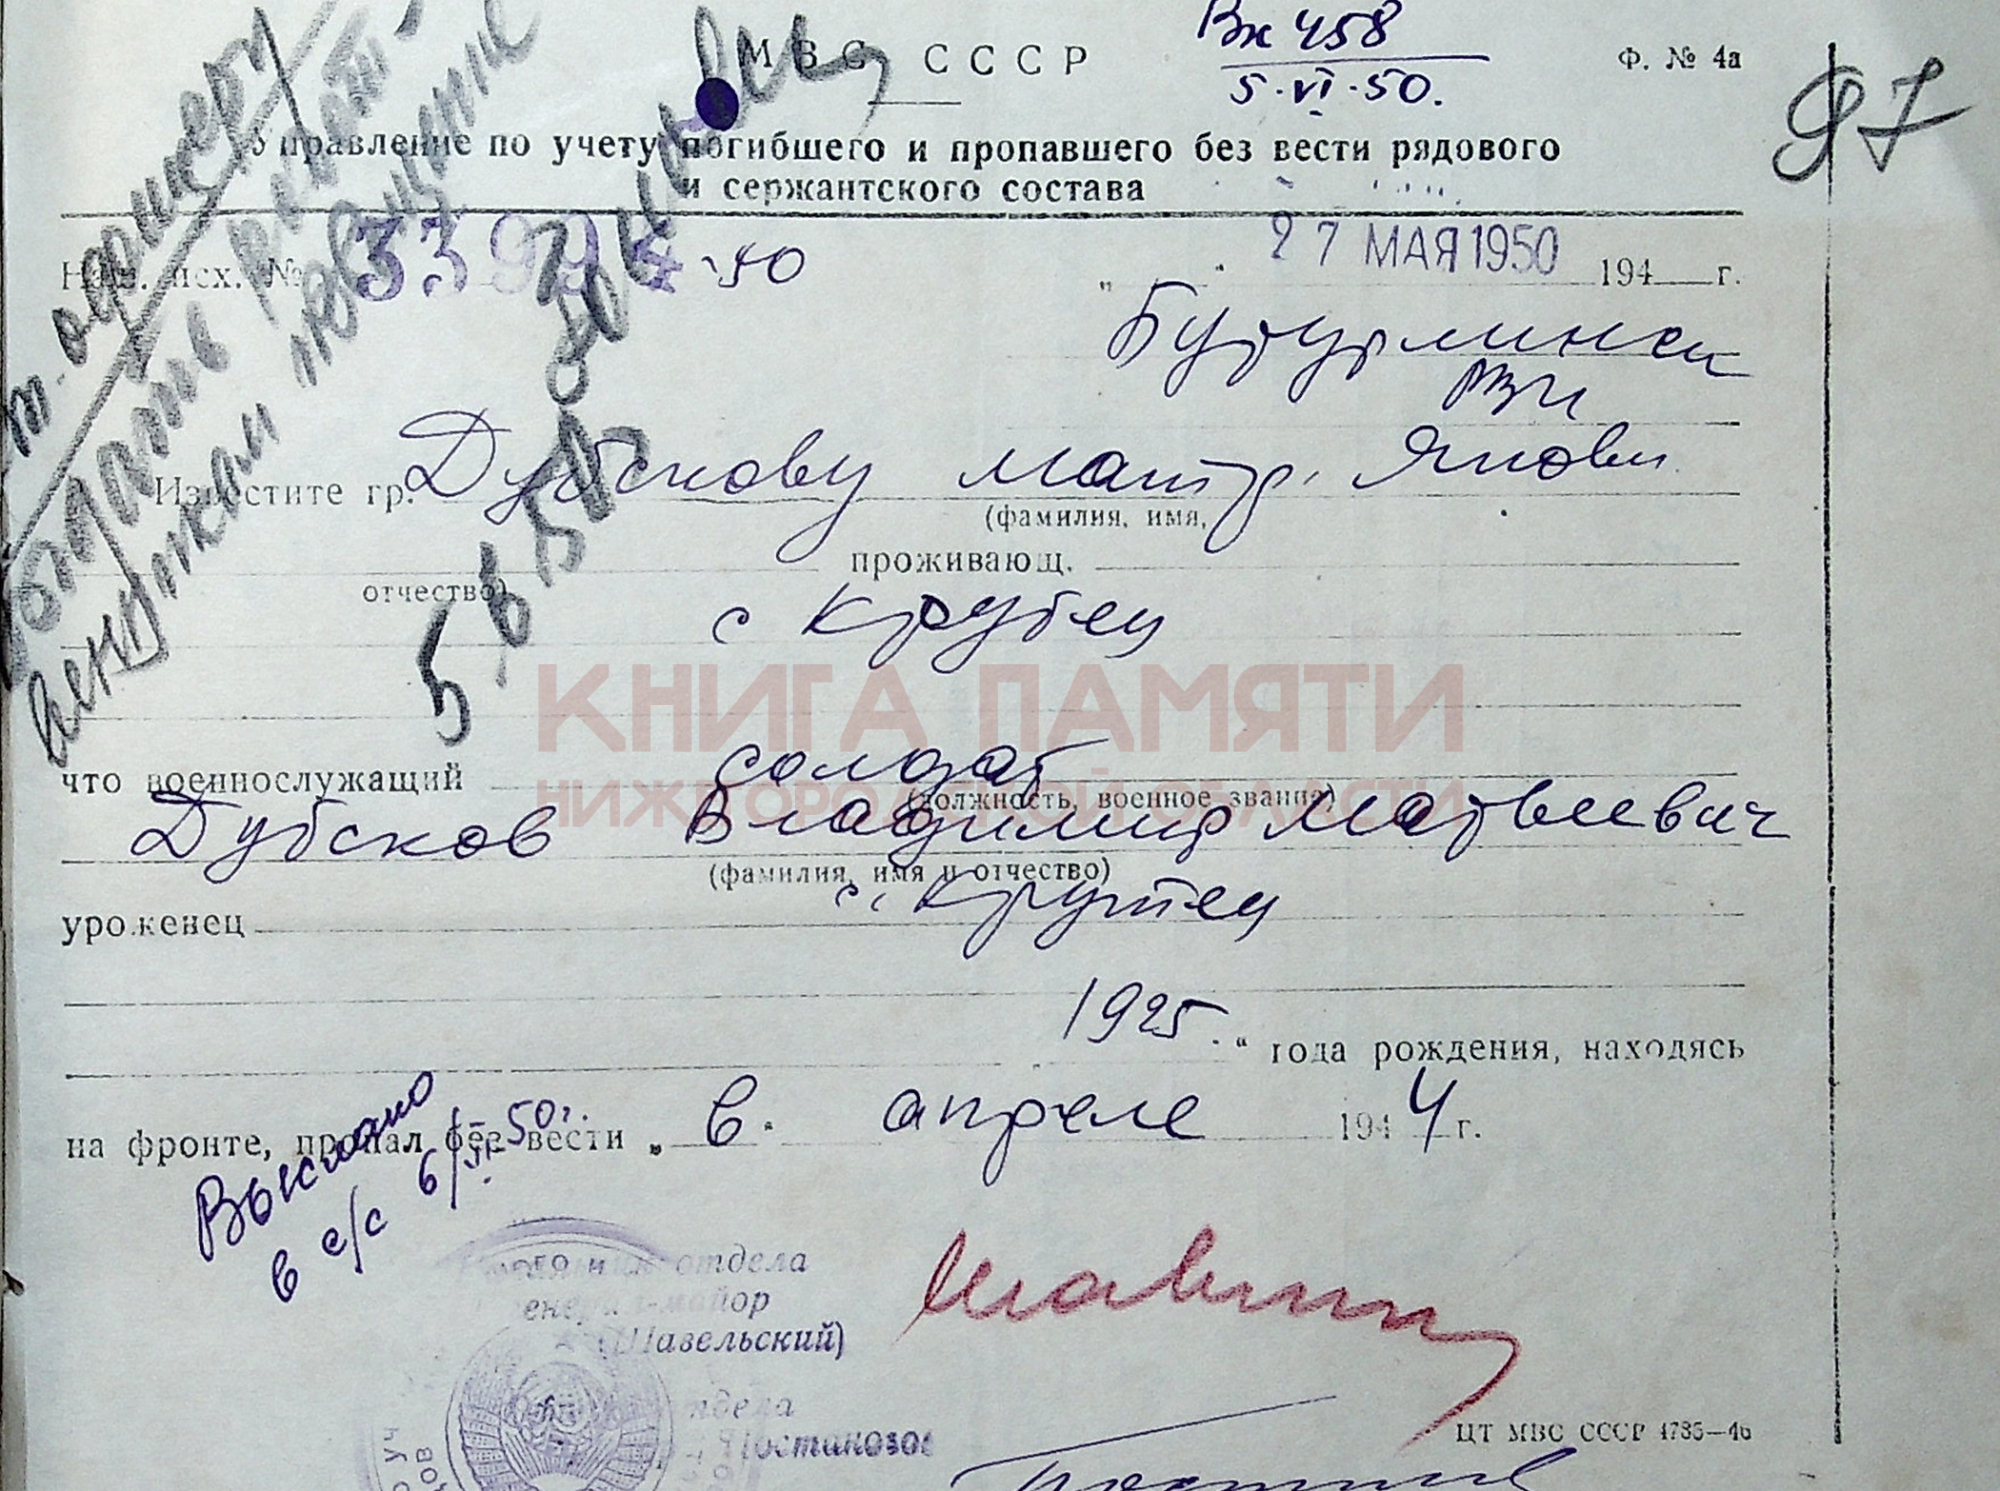 Вх 458
МВС СССР
Ф. № 4а
5·VI·50.
97
Управление по учету погибшего и пропавшего без вести рядового
и сержантского состава
Наш. исх. № 33994-50
" 27 МАЯ 1950 194 г.
Бутурлинск
РВК
Известите гр. Дубскову Матр. Яковл.
(фамилия, имя,
проживающ.
отчество)
с Крутец
КНИГА ПАМЯТИ
НИЖЕГОРОДСКОЙ ОБЛАСТИ
что военнослужащий солдат
(должность, военное звание)
Дубсков Владимир Матвеевич
(фамилия, имя и отчество)
уроженец с. Крутец
1925 " года рождения, находясь
на фронте, пропал без вести „ в " апреле 1944 г.
Выслано
в с/с 6/VI-50г.
отдела
генерал-майор
(Шавельский)
отдела
ЦТ МВС СССР